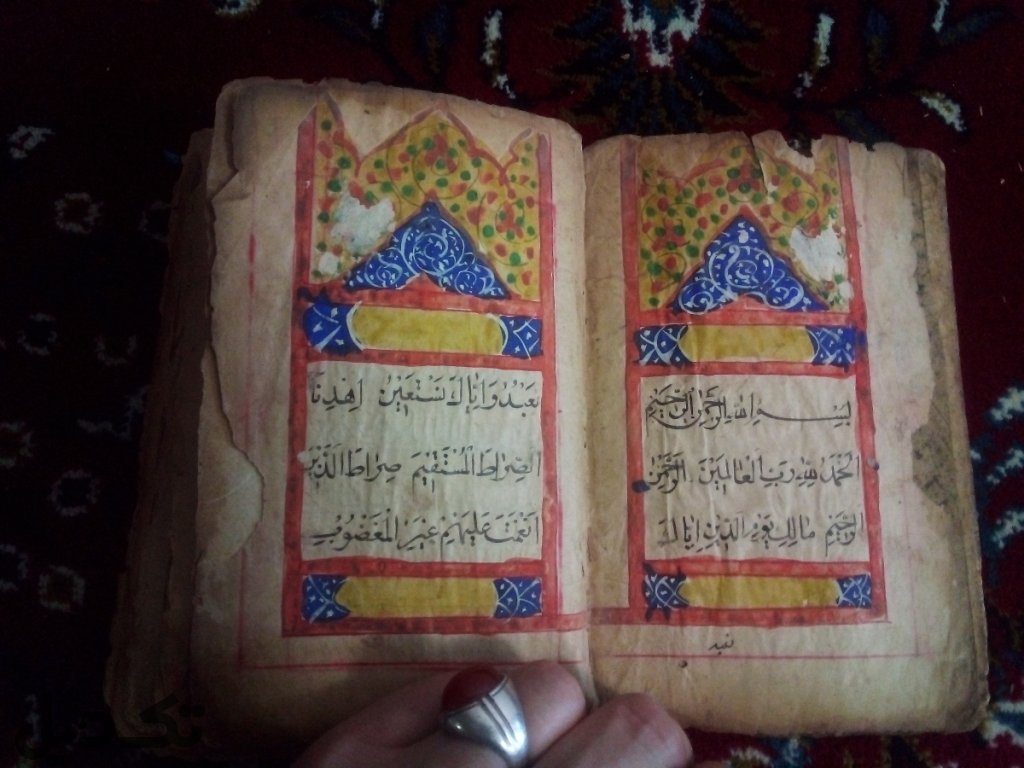 بِسْمِ اللهِ الرَّحْمٰنِ الرَّحِيْمِ
اَلْحَمْدُ لِلّٰهِ رَبِّ الْعَالَمِيْنَ الرَّحْمٰنِ
الرَّحِيْمِ مَالِكِ يَوْمِ الدِّيْنِ اِيَّاكَ
نعبد
نَعْبُدُ وَاِيَّاكَ نَسْتَعِيْنُ اِهْدِنَا
الصِّرَاطَ الْمُسْتَقِيْمَ صِرَاطَ الَّذِيْنَ
اَنْعَمْتَ عَلَيْهِمْ غَيْرِ الْمَغْضُوْبِ